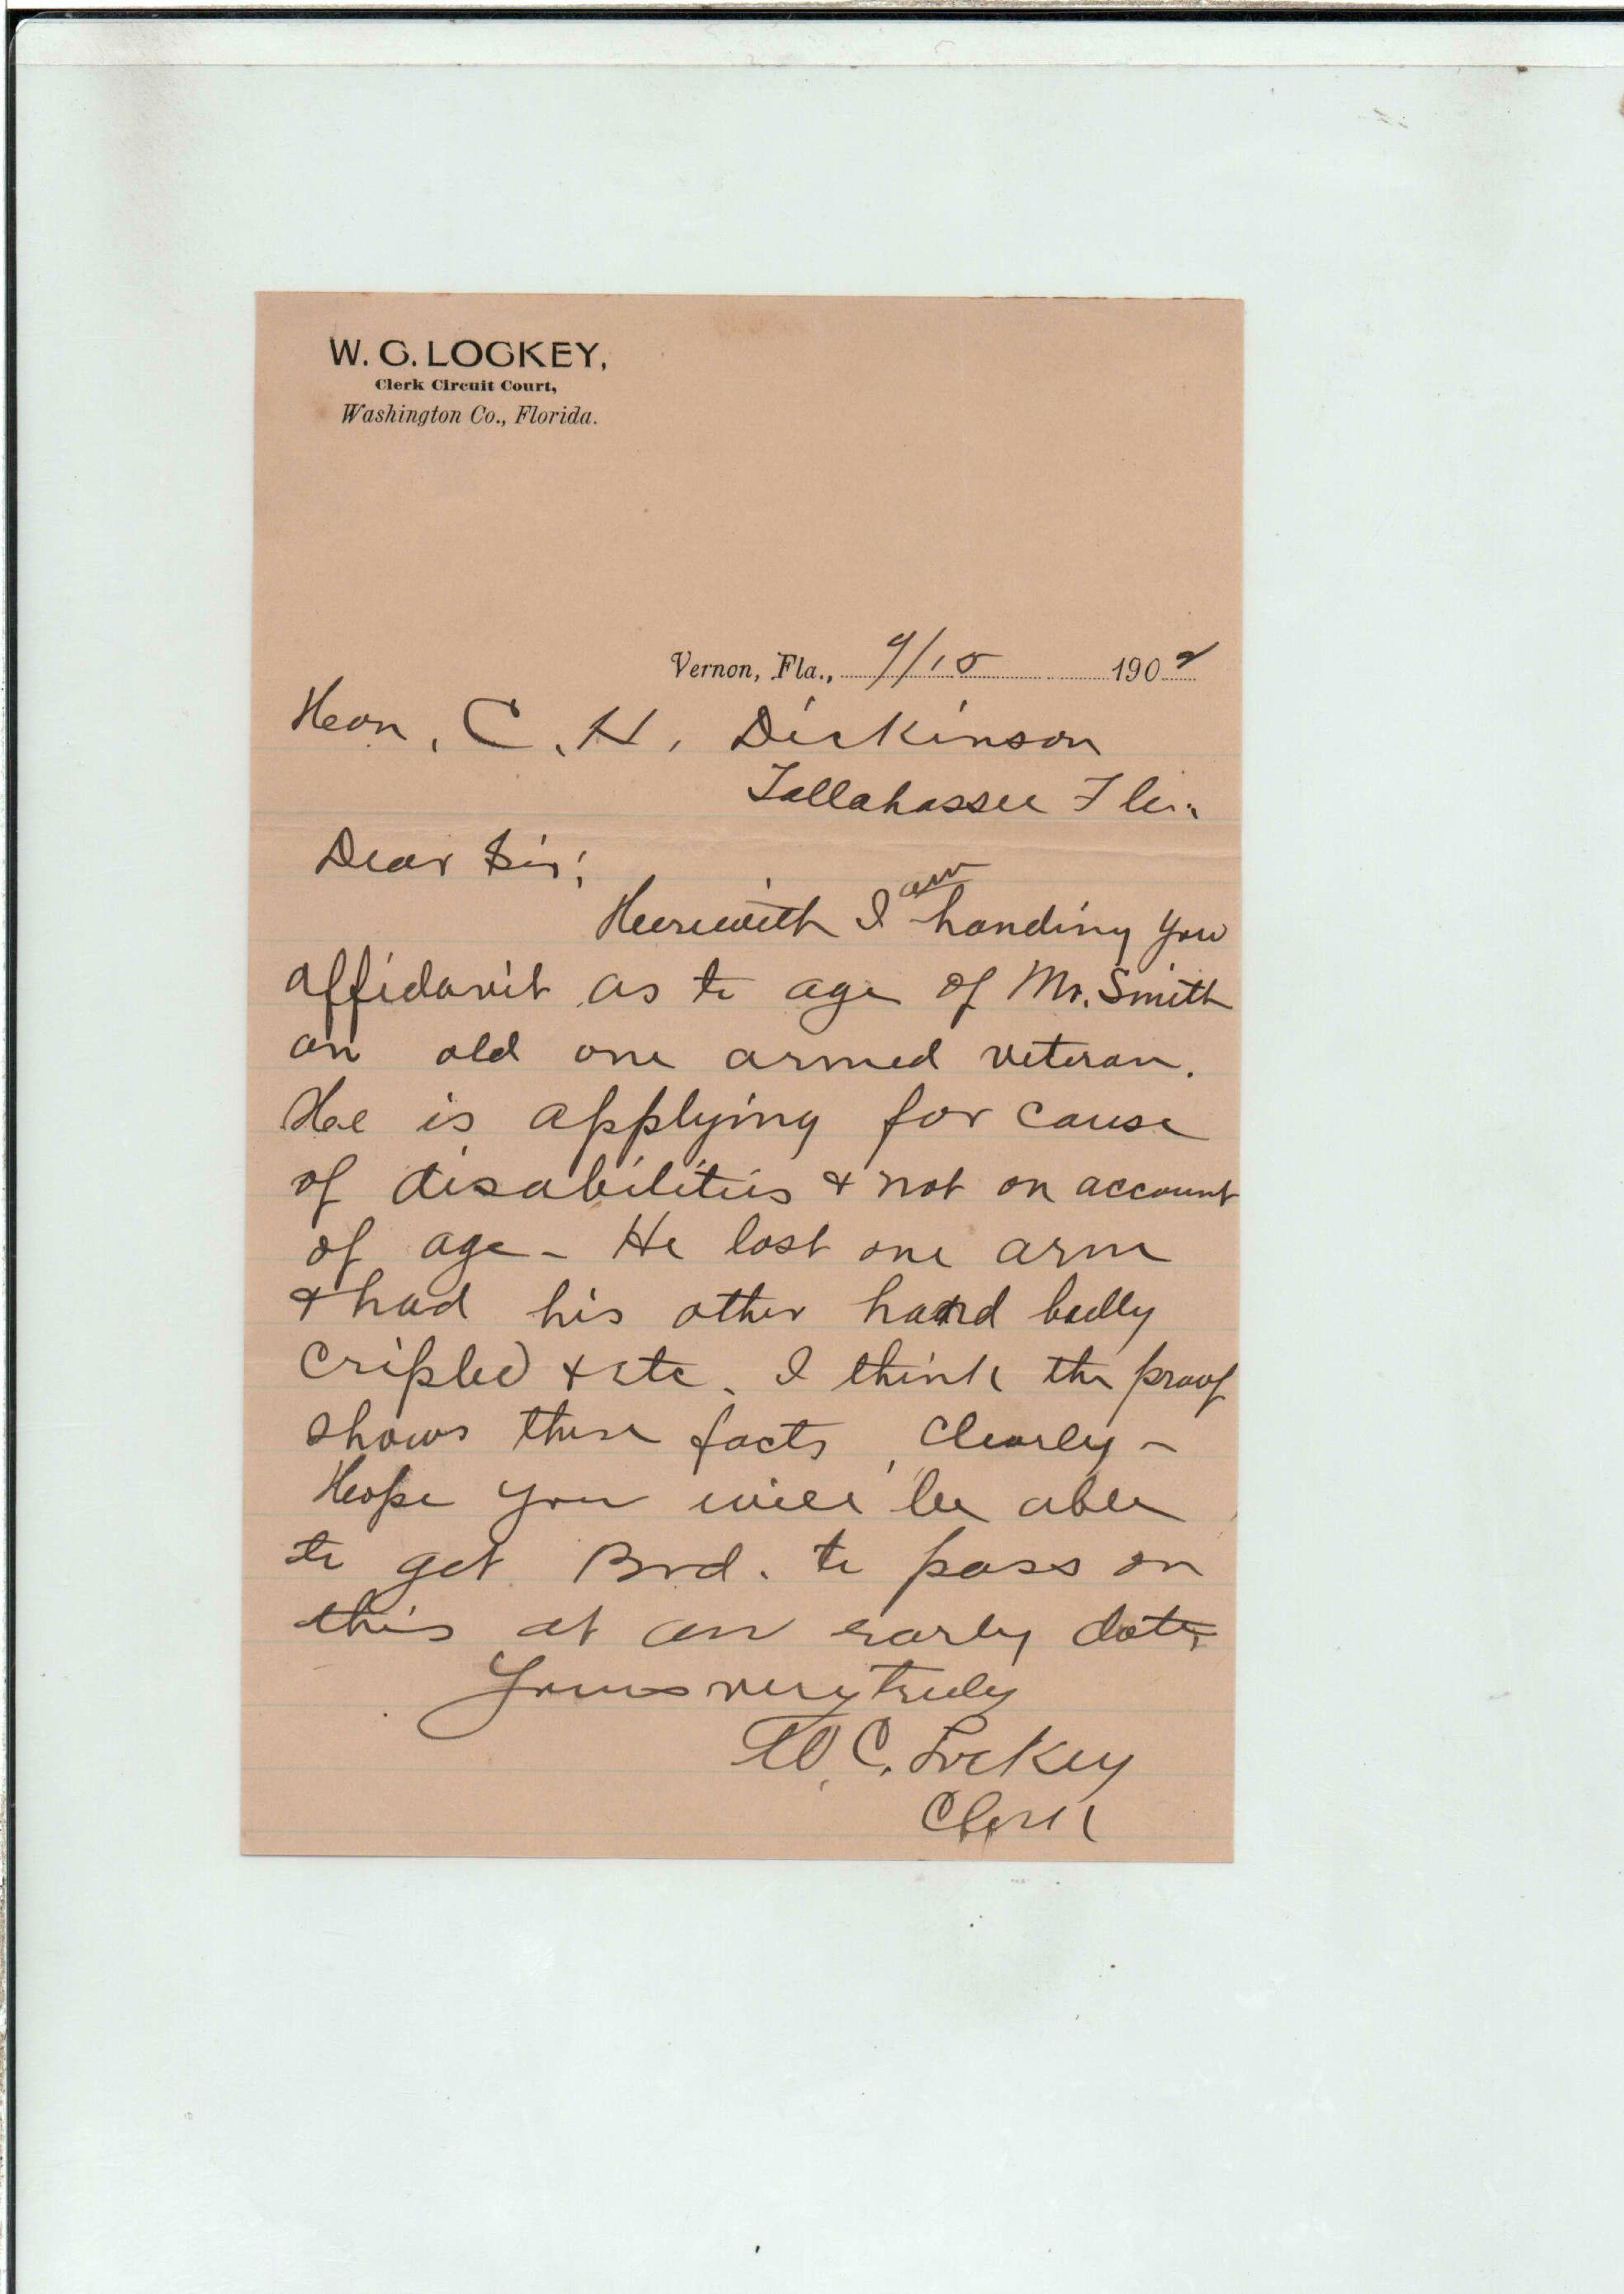 W. C. LOCKEY,
Clerk Circuit Court,
Washington Co., Florida.
Vernon, Fla., 9/15 190
Hon. C. H. Dickinson
Tallahassee Fla.
Dear Sir;
Herewith I am handing you
affidavit as to age of Mr. Smith
an old one armed veteran.
He is applying for cause
of disabilities & not on account
of age - He lost one arm
& had his other hand badly
cripled & etc. I think the proof
shows these facts, clearly -
Hope you will be able
to get Brd. to pass on
this at an early date,
Yours very truly
W. C. Lockey
Clerk